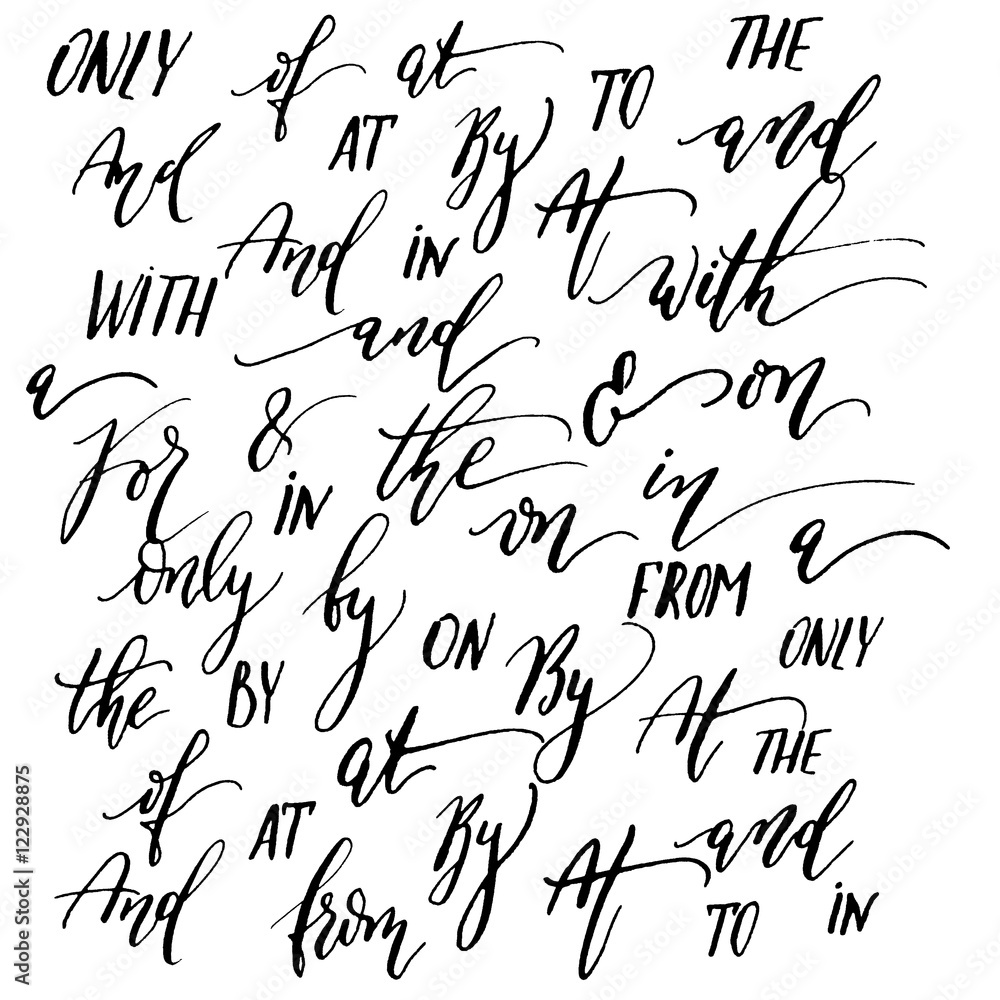 ONLY of at THE
And AT By TO and
And IN At with
WITH and
a & the & on
For IN on in a
Only by FROM
the BY ON By At ONLY
of at THE
AT By At and
And from TO IN
Adobe Stock | #122928875